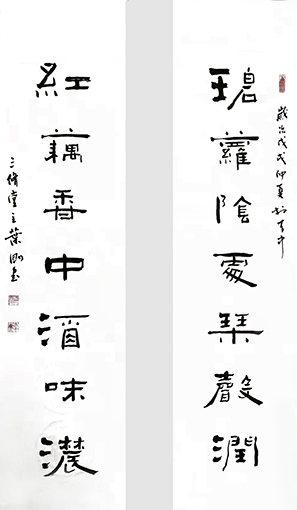 歲次戊戌仲夏
碧蘿陰處琴聲潤
紅藕香中酒味濃
三脩堂主葉書